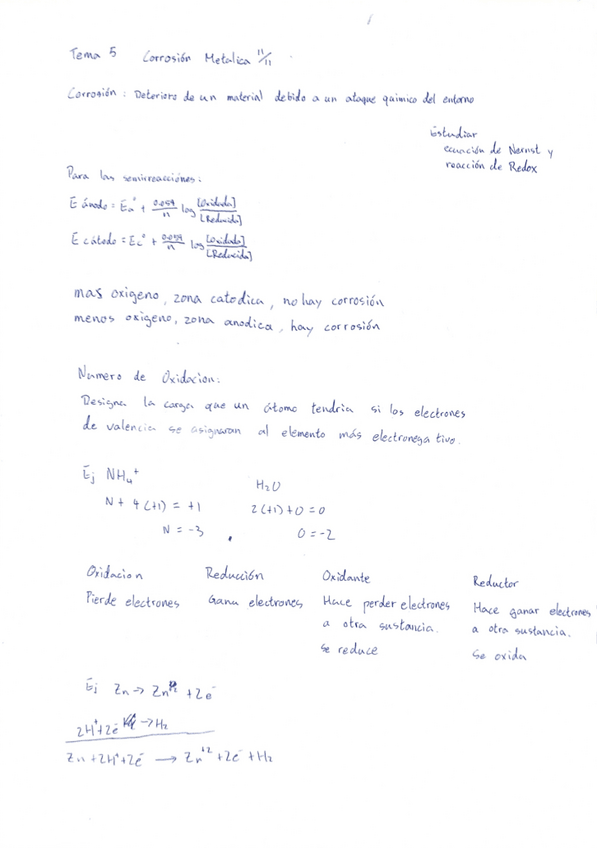 Tema 5 Corrosión Metalica 11/11
Corrosión : Deterioro de un material debido a un ataque quimico del entorno
Estudiar
ecuación de Nernst y
reacción de Redox
Para las semirreacciónes:
E ánodo = Ea° + 0.059/n log [Oxidada]/[Reducida]
E cátodo = Ec° + 0.059/n log [Oxidado]/[Reducida]
mas oxigeno, zona catodica, no hay corrosión
menos oxigeno, zona anodica, hay corrosión
Numero de Oxidacion:
Designa la carga que un átomo tendria si los electrones
de valencia se asignaran al elemento más electronegativo.
Ej NH₄⁺ H₂O
N + 4(+1) = +1 2(+1)+O = 0
N = -3 O = -2
Oxidacion Reducción Oxidante Reductor
Pierde electrones Gana electrones Hace perder electrones Hace ganar electrones
a otra sustancia. a otra sustancia.
se reduce Se oxida
Ej Zn → Zn⁺² + 2e⁻
2H⁺+2e⁻ → H₂
Zn + 2H⁺+2e⁻ → Zn⁺² + 2e⁻ + H₂